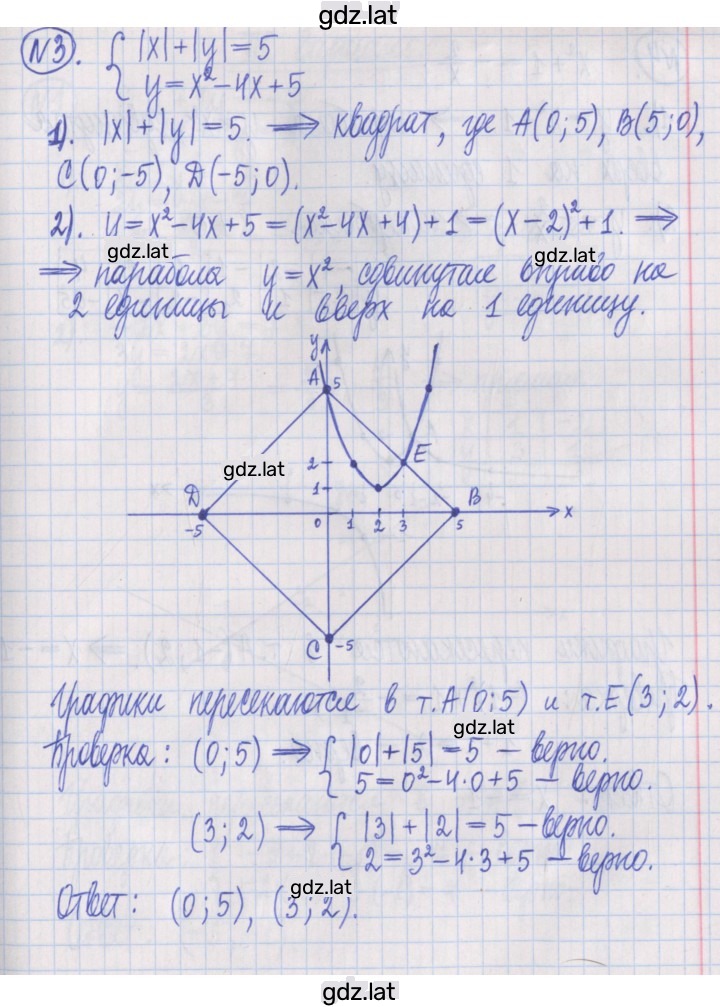 gdz.lat
N3). { |x|+|y|=5
y=x²-4x+5
1). |x|+|y|=5. ⟹ квадрат, где A(0;5), B(5;0),
C(0;-5), D(-5;0).
2). y=x²-4x+5=(x²-4x+4)+1=(x-2)²+1. ⟹
gdz.lat
gdz.lat
⟹ парабола y=x², сдвинутая вправо на
2 единицы и вверх на 1 единицу.
y
A 5
gdz.lat
2 E
1
D B
-5 0 1 2 3 5 x
C -5
Графики пересекаются в т.A(0;5) и т.E(3;2).
gdz.lat
Проверка: (0;5) ⟹ { |0|+|5|=5 – верно.
5=0²-4·0+5 – верно.
(3;2) ⟹ { |3|+|2|=5 – верно.
2=3²-4·3+5 – верно.
gdz.lat
Ответ: (0;5), (3;2).
gdz.lat